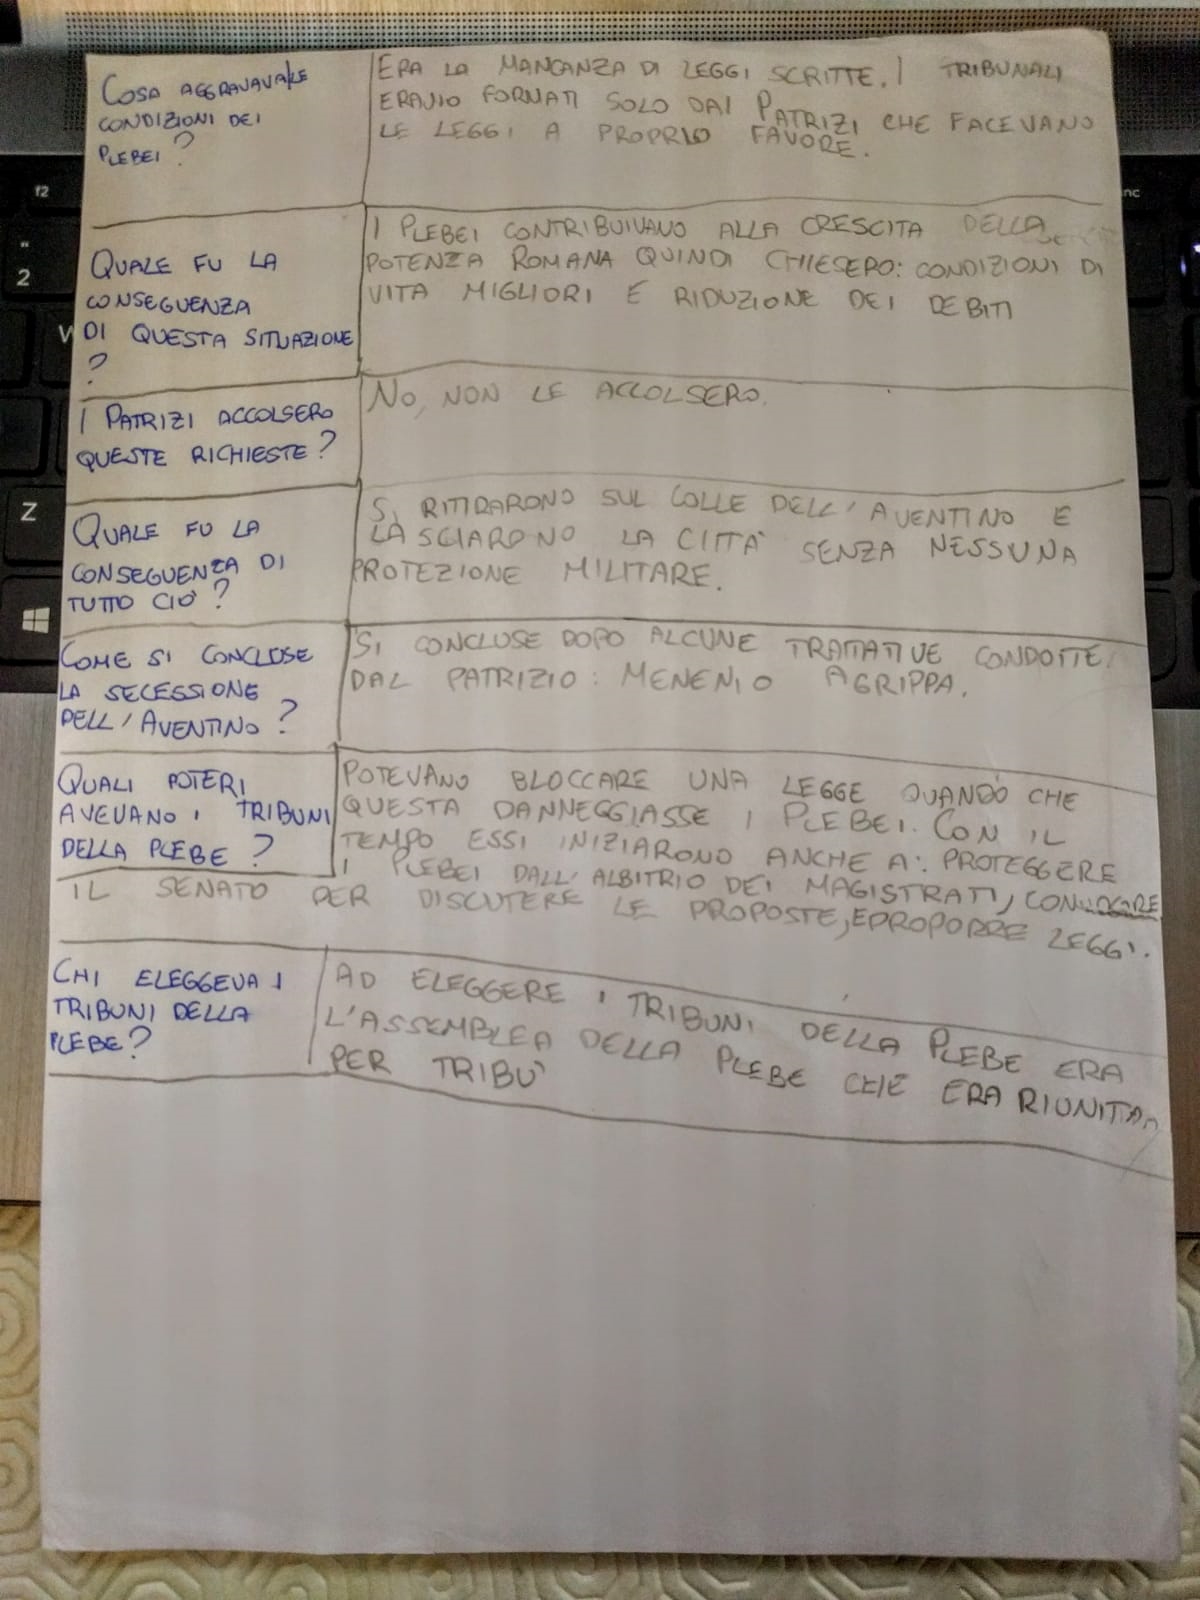 COSA AGGRAVAVA LE
CONDIZIONI DEI
PLEBEI?
ERA LA MANCANZA DI LEGGI SCRITTE. I TRIBUNALI
ERANO FORMATI SOLO DAI PATRIZI CHE FACEVANO
LE LEGGI A PROPRIO FAVORE.
QUALE FU LA
CONSEGUENZA
DI QUESTA SITUAZIONE
?
I PLEBEI CONTRIBUIVANO ALLA CRESCITA DELLA
POTENZA ROMANA QUINDI CHIESERO: CONDIZIONI DI
VITA MIGLIORI E RIDUZIONE DEI DEBITI
I PATRIZI ACCOLSERO
QUESTE RICHIESTE?
NO, NON LE ACCOLSERO.
QUALE FU LA
CONSEGUENZA DI
TUTTO CIÒ?
SI RITIRARONO SUL COLLE DELL'AVENTINO E
LASCIARONO LA CITTÀ SENZA NESSUNA
PROTEZIONE MILITARE.
COME SI CONCLUSE
LA SECESSIONE
DELL'AVENTINO?
SI CONCLUSE DOPO ALCUNE TRATTATIVE CONDOTTE
DAL PATRIZIO: MENENIO AGRIPPA.
QUALI POTERI
AVEVANO I TRIBUNI
DELLA PLEBE?
POTEVANO BLOCCARE UNA LEGGE QUANDO CHE
QUESTA DANNEGGIASSE I PLEBEI. CON IL
TEMPO ESSI INIZIARONO ANCHE A: PROTEGGERE
I PLEBEI DALL'ALBITRIO DEI MAGISTRATI, CONVOCARE
IL SENATO PER DISCUTERE LE PROPOSTE, E PROPORRE LEGGI.
CHI ELEGGEVA I
TRIBUNI DELLA
PLEBE?
AD ELEGGERE I TRIBUNI DELLA PLEBE ERA
L'ASSEMBLEA DELLA PLEBE CHE ERA RIUNITA
PER TRIBÙ
f2
"
2
W
Z